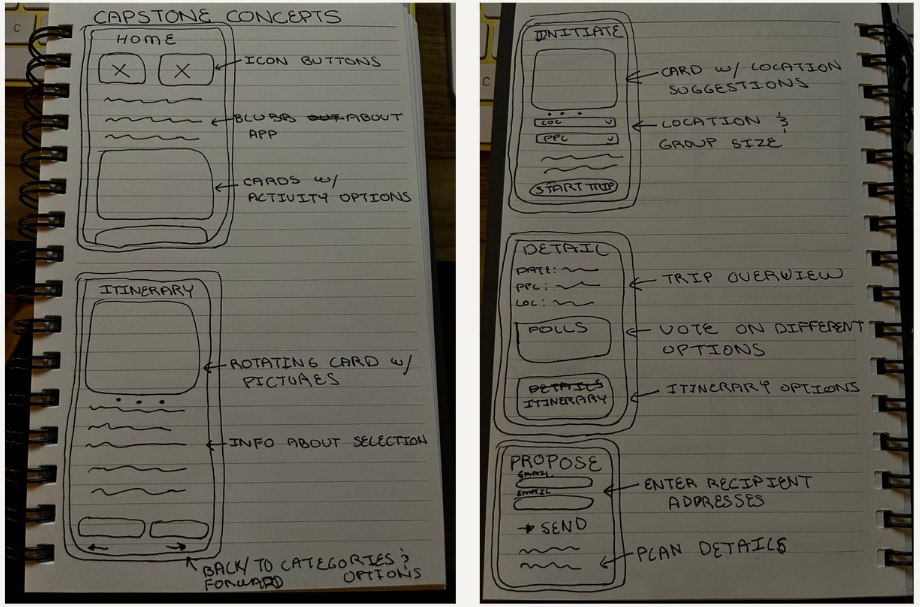 CAPSTONE CONCEPTS
HOME
ICON BUTTONS
BLURBS OUT ABOUT
APP
CARDS W/
ACTIVITY OPTIONS
ITINERARY
ROTATING CARD W/
PICTURES
INFO ABOUT SELECTION
BACK/TO CATEGORIES &
FORWARD OPTIONS
C
INITIATE
CARD W/ LOCATION
SUGGESTIONS
LOC
PPL
LOCATION &
GROUP SIZE
START TRIP
DETAIL
DATE:
PPL:
LOC:
TRIP OVERVIEW
POLLS
VOTE ON DIFFERENT
OPTIONS
DETAILS
ITINERARY
ITINERARY OPTIONS
PROPOSE
EMAIL
EMAIL
ENTER RECIPIENT
ADDRESSES
SEND
PLAN DETAILS
C